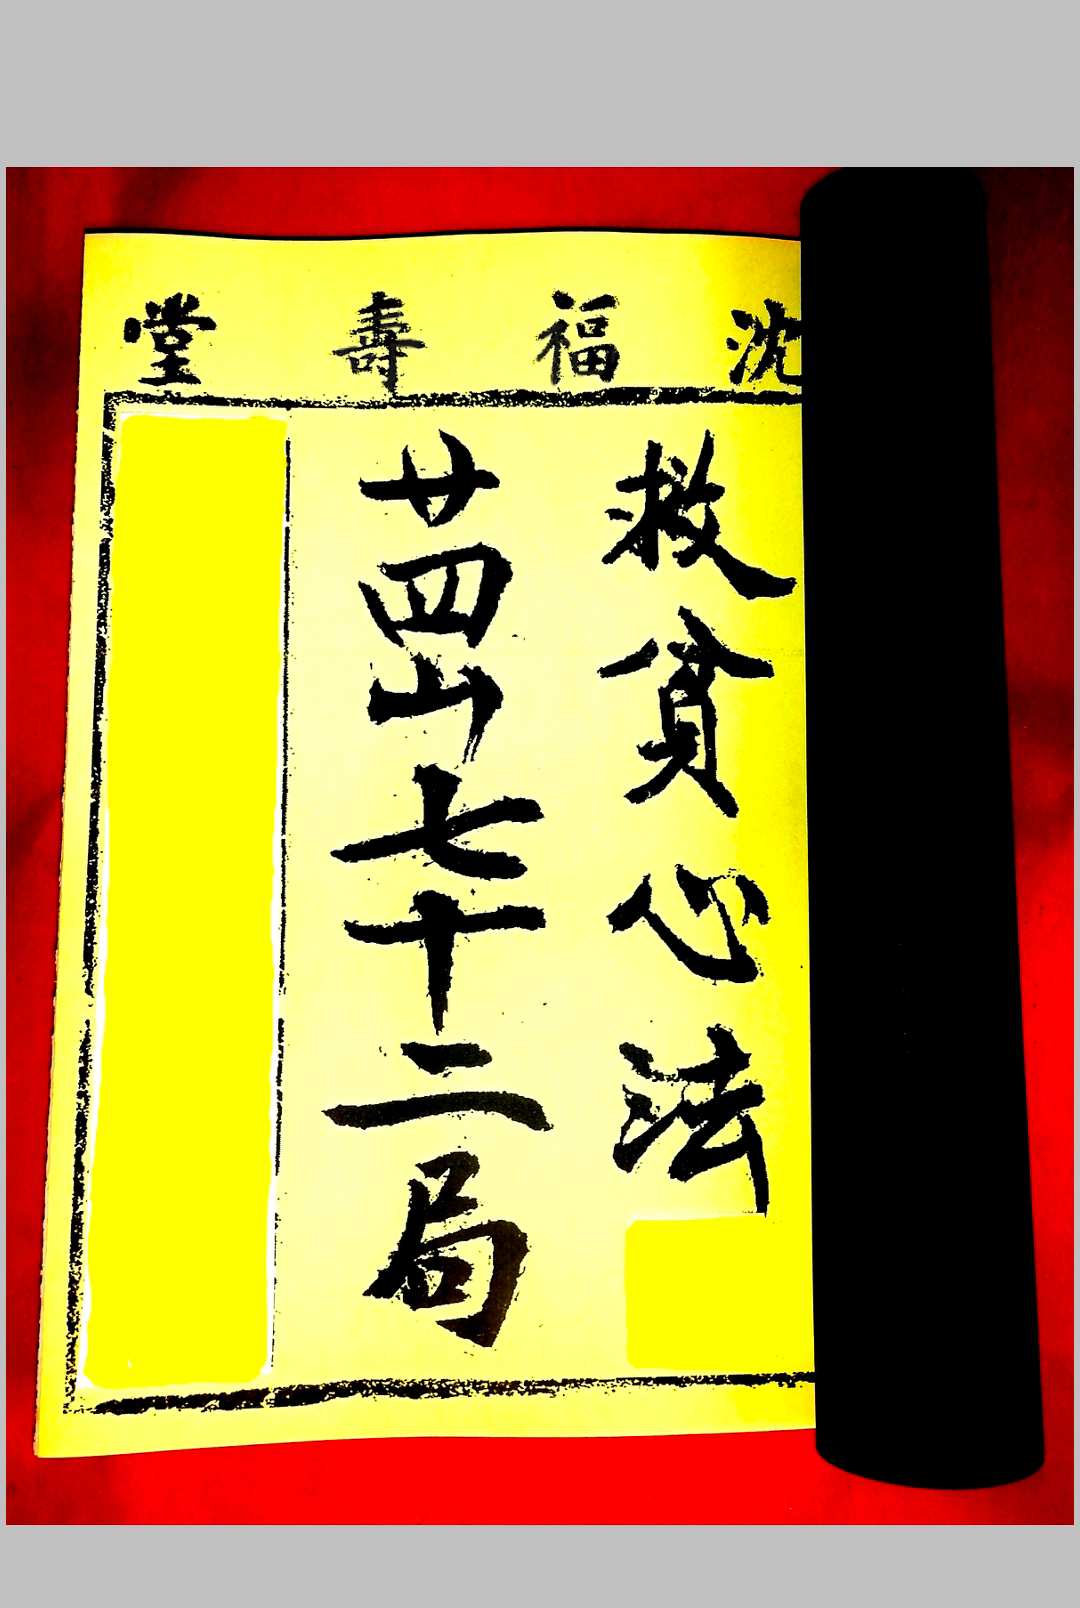 沈福壽堂
救貧心法
廿四山七十二局